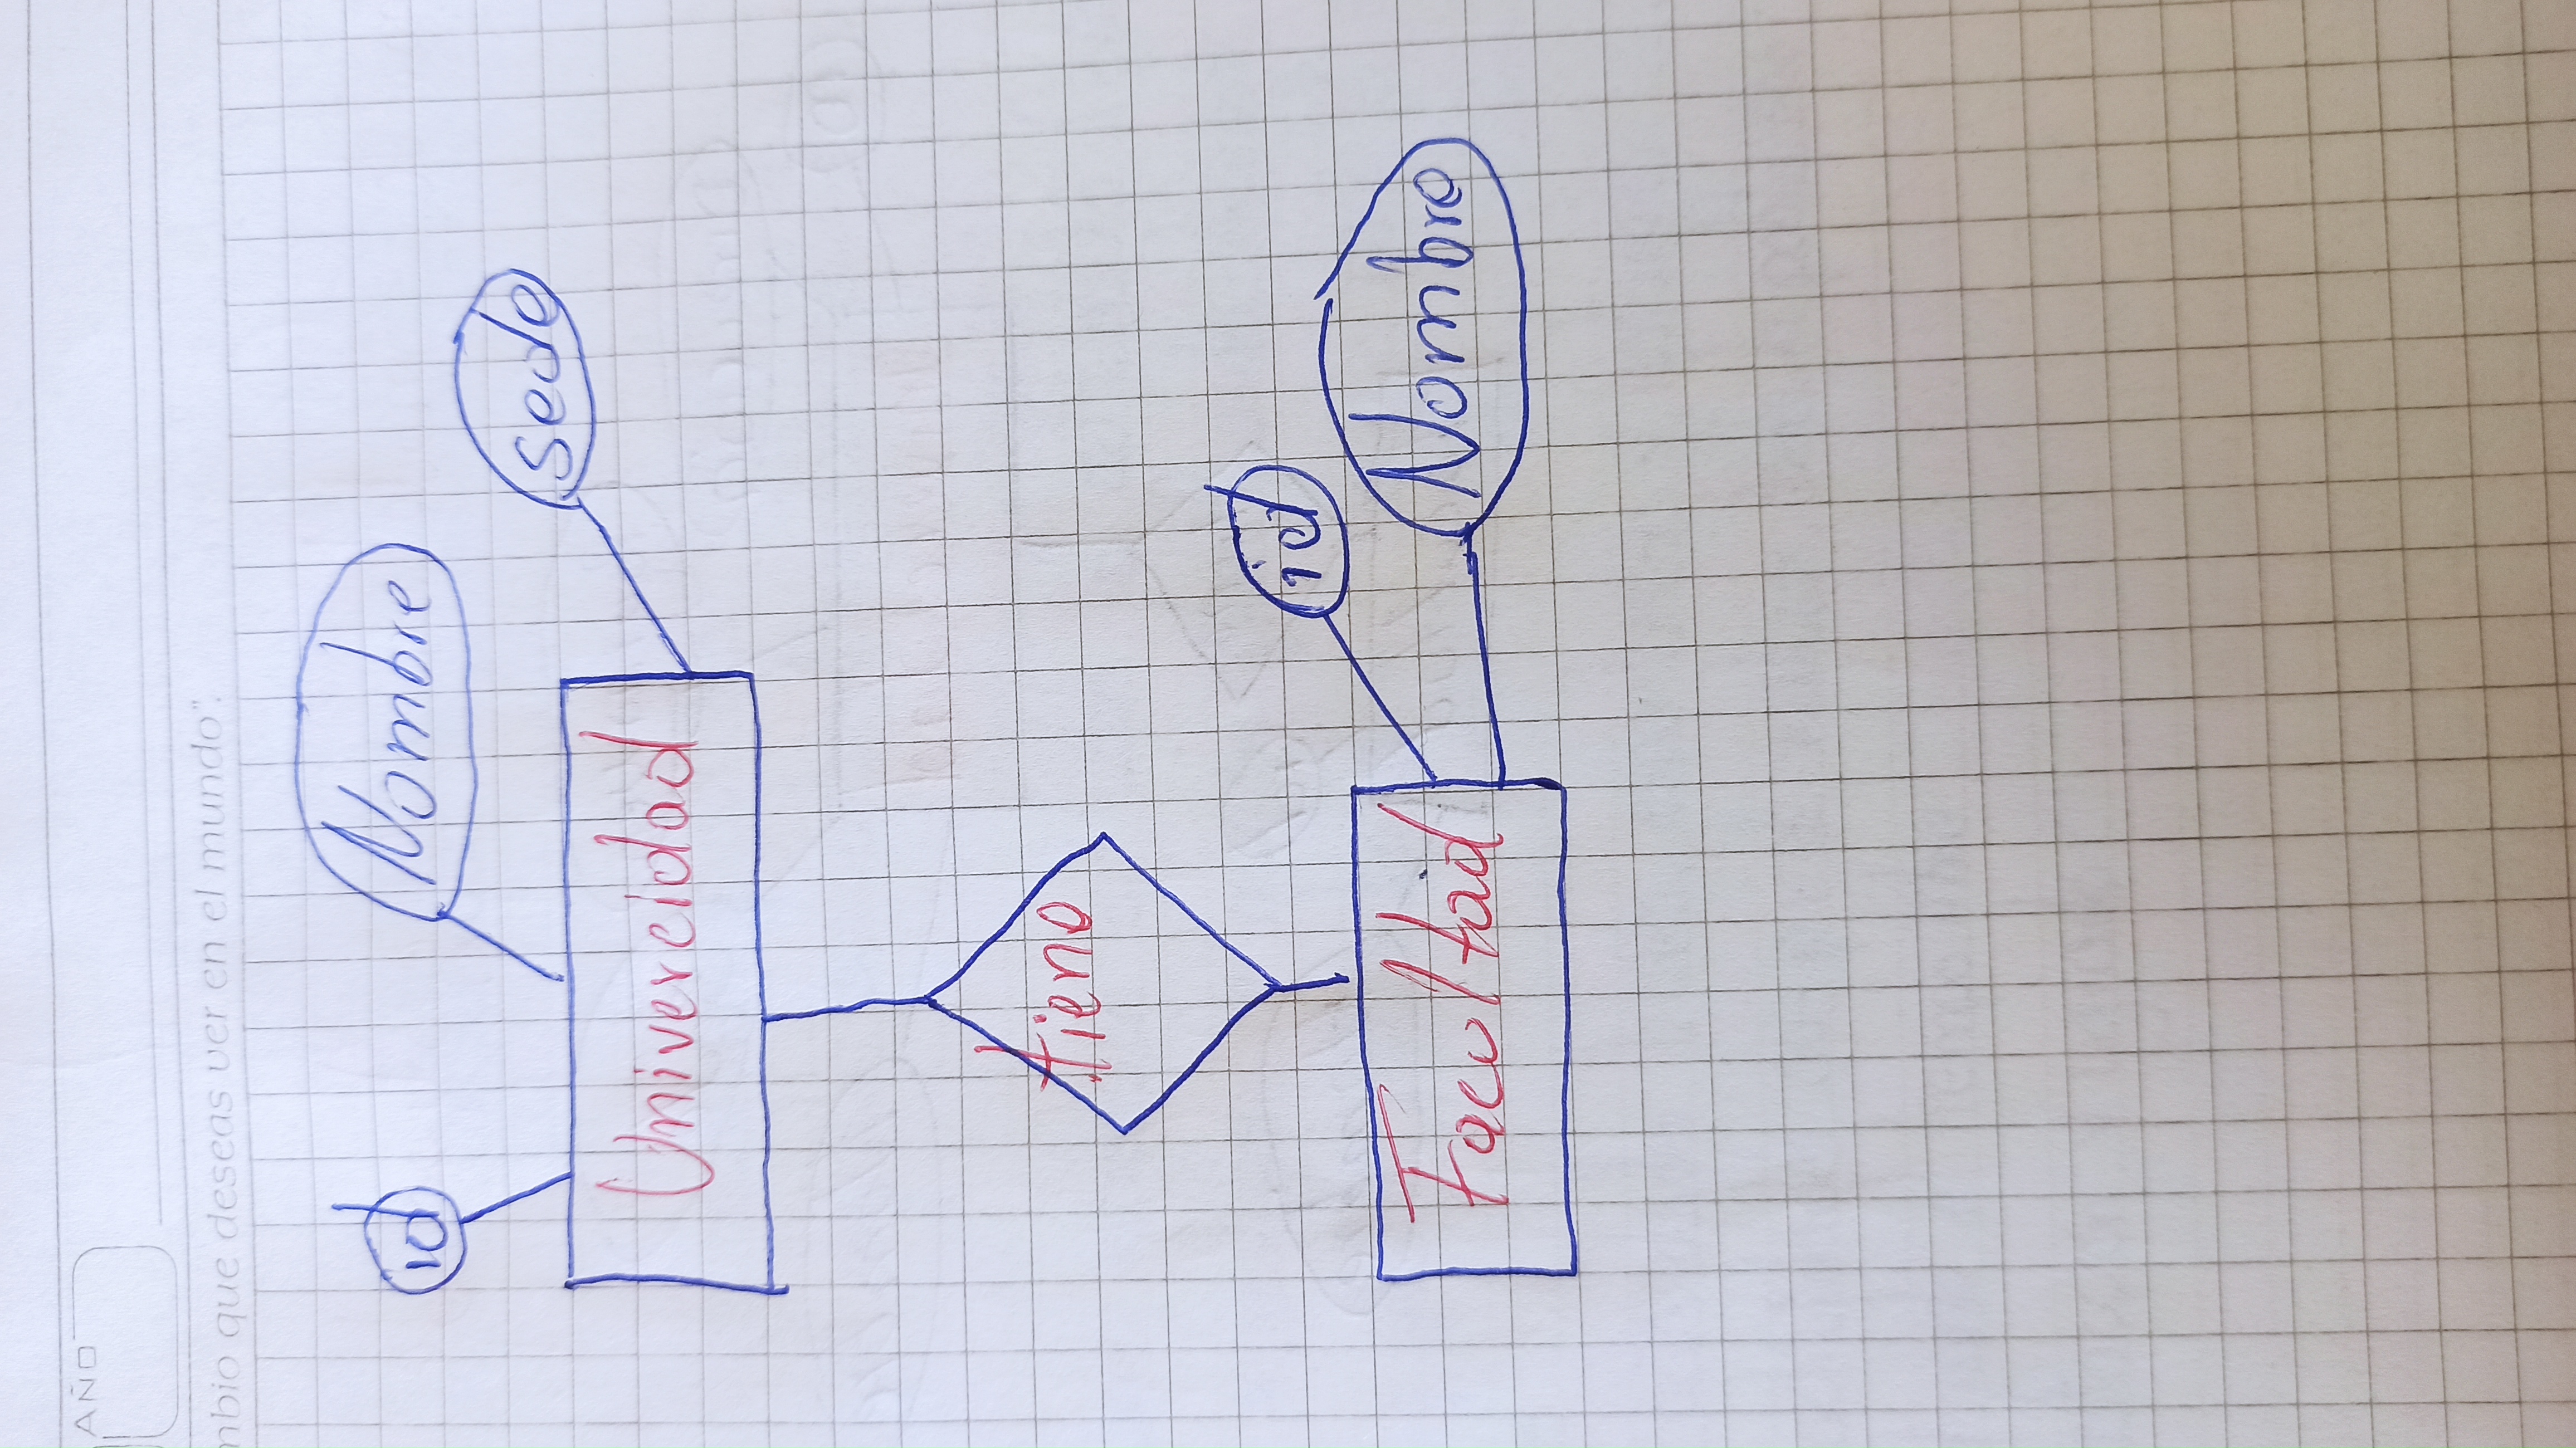 AÑO
mbio que deseas ver en el mundo".
id
Nombre
sede
Univercidad
tiene
id
Facultad
Nombre